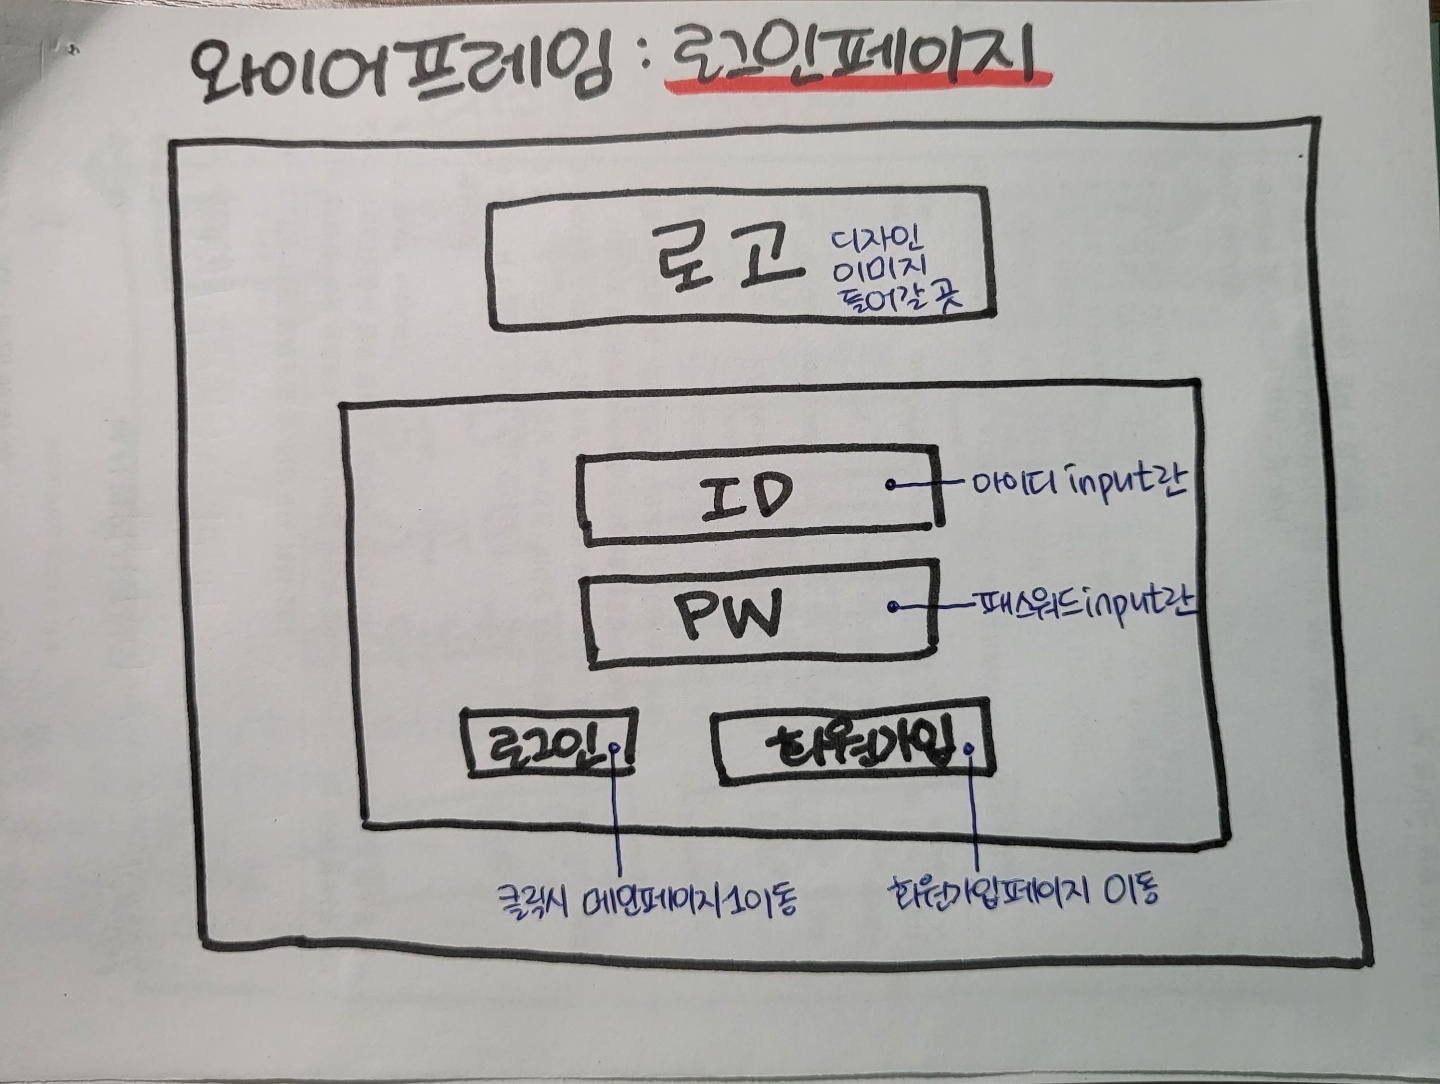 와이어프레임 : 로그인페이지
로고
디자인
이미지
들어갈 곳
ID
아이디 input란
PW
패스워드 input란
로그인
회원가입
클릭시 메인페이지1이동
회원가입페이지 이동